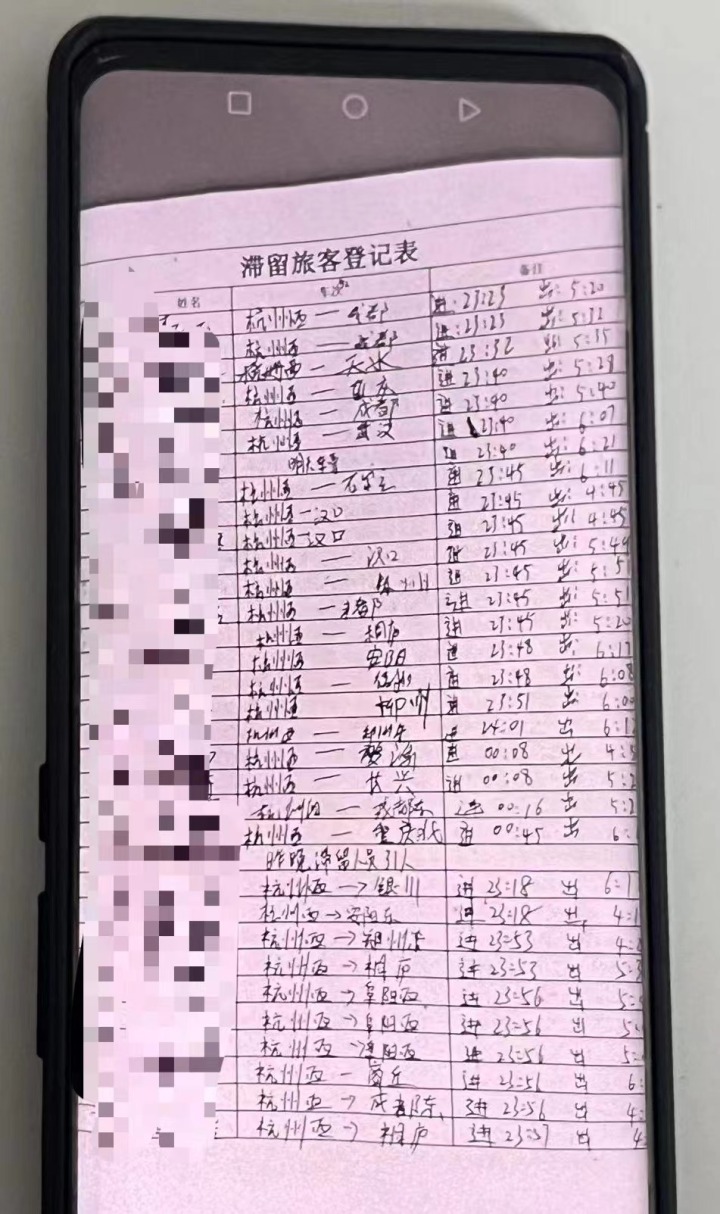 滞留旅客登记表
姓名 车次 备注
杭州西 — 成都 进:23:23 出:5:20
杭州西 — 成都 进:23:23 出:5:32
杭州西 — 天水 进 23:32 出:5:35
杭州西 — 进 23:40 出:5:28
杭州西 — 成都 进 23:40 出:5:40
杭州西 — 武汉 进 23:40 出:6:07
进 23:40 出:6:21
杭州西 — 石家庄 进 23:45 出:6:11
杭州西—汉口 进 23:45 出:4:45
杭州西—汉口 进 23:45 出:4:45
杭州西 — 汉口 进 23:45 出:5:44
杭州西 — 进 23:45 出:5:51
杭州西 — 成都 进 23:45 出:5:51
杭州西 — 桐庐 进 23:45 出:5:20
杭州西 安阳 进 23:48 出:
杭州西 — 进 23:48 出:6:08
杭州西 柳州 进 23:51 出 6:00
杭州西 — 杭州东 进 24:01 出
杭州西 — 婺源 进 00:08 出
杭州西 — 长兴 进 00:08 出 5:2
杭州西 — 成都东 进 00:16 出 5:2
杭州西 — 重庆北 进 00:45 出 6:
昨晚滞留人员31人
杭州西 → 银川 进 23:18 出 6:1
杭州西 → 安阳东 进 23:18 出 4:1
杭州西 → 郑州东 进 23:53 出 4:
杭州西 → 桐庐 进 23:53 出 5:
杭州西 → 阜阳西 进 23:56 出 5:
杭州西 → 阜阳西 进 23:56 出 5:
杭州西 → 阜阳西 进 23:56 出 5:
杭州西 — 商丘 进 23:56 出 6:
杭州西 → 成都东 进 23:56 出 4:
杭州西 → 桐庐 进 23:57 出 4: